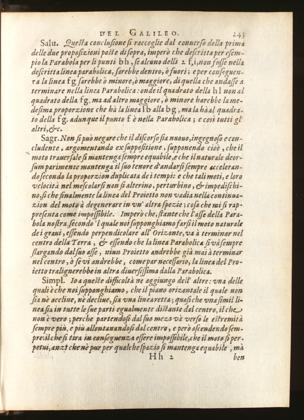 DEL GALILEO. 243
Salu. Questa conclusione si raccoglie dal conuerso della prima
delle due proposizioni poste di sopra, imperò che descritta per esem-
pio la Parabola per li punti bh, se alcuno delli 2 f, i, non fusse nella
descritta linea parabolica, sarebbe dentro, ò fuori: e per conseguen-
za la linea fg sarebbe ò minore, ò maggiore, di quella che andasse à
terminare nella linea Parabolica: onde il quadrato della hl non al
quadrato della fg, ma ad altro maggiore, ò minore harebbe la me-
desima proporzione che hà la linea lb alla bg, ma la hà al quadra-
to della fg, adunque il punto f è nella Parabolica; e così tutti gl'
altri, &c.
Sagr. Non si può negare che il discorso sia nuouo, ingegnoso e con-
cludente, argomentando ex suppositione, supponendo cioè, che il
moto trasuersale si mantenga sempre equabile, e che il naturale deor-
sum parimente mantenga il suo tenore d'andarsi sempre acceleran-
do secondo la proporzion duplicata de i tempi: e che tali moti, e loro
velocità nel mescolarsi non si alterino, perturbino, & impedischi-
no, sì che finalmente la linea del Proietto non vadia nella continua-
zion del moto à degenerare in vn' altra spezie; cosa che mi si rap-
presenta come impossibile. Imperò che, stante che l'asse della Para-
bola nostra, secondo 'l quale noi supponghiamo farsi il moto naturale
de i graui, essendo perpendicolare all' Orizonte, và à terminar nel
centro della Terra, & essendo che la linea Parabolica si và sempre
slargando dal suo asse, niuno Proietto andrebbe già mai à terminar
nel centro, ò se vi andrebbe, come par necessario, la linea del Pro-
ietto tralignerebbe in altra diuersissima dalla Parabolica.
Simpl. Io à queste difficultà ne aggiungo dell' altre: vna delle
quali è che noi supponghiamo, che il piano orizontale il quale non
sia nè accliue, nè decliue, sia vna linea retta; quasi che vna simil li-
nea sia in tutte le sue parti egualmente distante dal centro, il che
non è vero; perche partendosi dal suo mezo và verso le estremità
sempre più, e più allontanandosi dal centro, e però ascendendo sem-
pre: il che si tira in conseguenza essere impossibile, che il moto si per-
petui, anzi che nè pur per qualche spazio si mantenga equabile, mà
Hh 2 ben